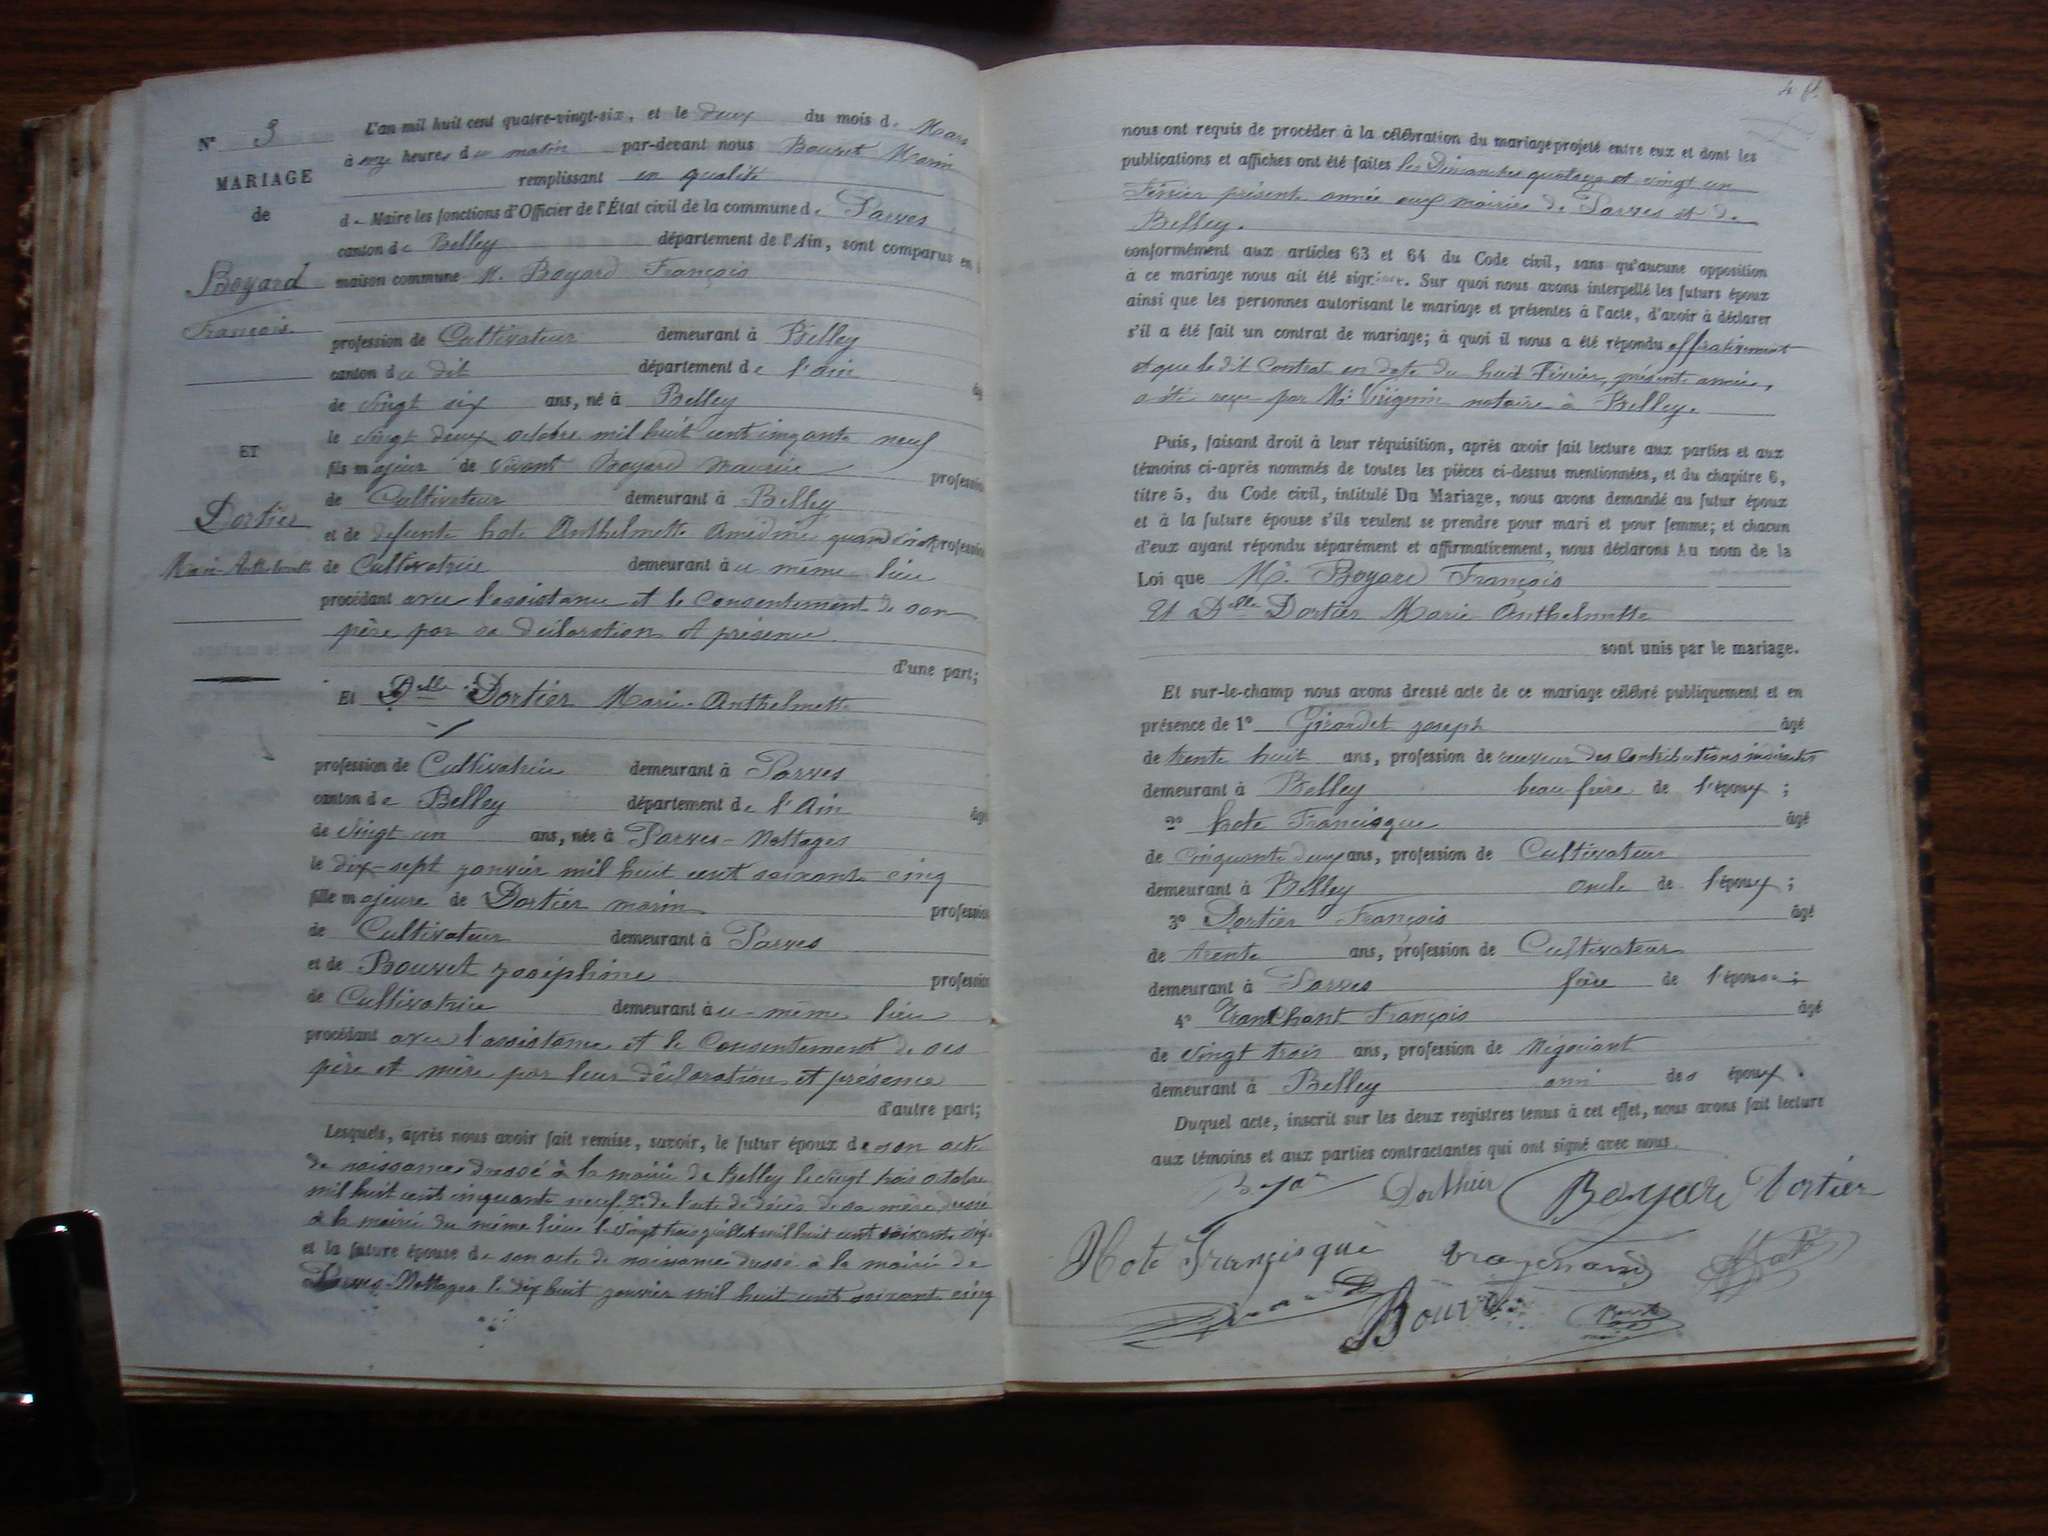 N° 3
MARIAGE
de
Boyard
François
ET
Dortier
Marie Anthelmette
L'an mil huit cent quatre-vingt-six, et le deux du mois de Mars
à onze heures du matin par-devant nous Bouvet Marin
remplissant en qualité
de Maire les fonctions d'Officier de l'État civil de la commune de Parves
canton de Belley département de l'Ain, sont comparus en
maison commune M. Boyard François
profession de Cultivateur demeurant à Belley
canton du dit département de l'Ain
de vingt six ans, né à Belley
le vingt deux octobre mil huit cent cinquante neuf
fils majeur de vivant Boyard Maurice profession
de Cultivateur demeurant à Belley
et de defunte hote Anthelmette Amédine quand vivait profession
de Cultivatrice demeurant au même lieu
procédant avec l'assistance et le consentement de son
père par sa déclaration et présence
d'une part;
Et Delle Dortier Marie Anthelmette
profession de Cultivatrice demeurant à Parves
canton de Belley département de l'Ain âgé
de vingt un ans, née à Parves-Nattages
le dix-sept janvier mil huit cent soixante cinq
fille majeure de Dortier marin profession
de Cultivateur demeurant à Parves
et de Bouvet Joséphine profession
de Cultivatrice demeurant au même lieu
procédant avec l'assistance et le Consentement de ses
père et mère par leur déclaration et présence
d'autre part;
Lesquels, après nous avoir fait remise, savoir, le futur époux de son acte
de naissance dressé à la mairie de Belley le vingt trois octobre
mil huit cent cinquante neuf. 2° de l'acte de décès de sa mère dressé
à la mairie du même lieu le vingt trois juillet mil huit cent soixante six
et la future épouse de son acte de naissance dressé à la mairie de
Parves-Nattages le dix huit janvier mil huit cent soixante cinq
nous ont requis de procéder à la célébration du mariage projeté entre eux et dont les
publications et affiches ont été faites les Dimanches quatorze et vingt un
Février présente année aux mairies de Parves et de
Belley.
conformément aux articles 63 et 64 du Code civil, sans qu'aucune opposition
à ce mariage nous ait été signifiée. Sur quoi nous avons interpellé les futurs époux
ainsi que les personnes autorisant le mariage et présentes à l'acte, d'avoir à déclarer
s'il a été fait un contrat de mariage; à quoi il nous a été répondu
et que le dit Contrat en date du huit Février, présente année,
a été reçu par Me notaire à Belley.
Puis, faisant droit à leur réquisition, après avoir fait lecture aux parties et aux
témoins ci-après nommés de toutes les pièces ci-dessus mentionnées, et du chapitre 6,
titre 5, du Code civil, intitulé Du Mariage, nous avons demandé au futur époux
et à la future épouse s'ils veulent se prendre pour mari et pour femme; et chacun
d'eux ayant répondu séparément et affirmativement, nous déclarons Au nom de la
Loi que Mr. Boyard François
Et Delle Dortier Marie Anthelmette
sont unis par le mariage.
Et sur-le-champ nous avons dressé acte de ce mariage célébré publiquement et en
présence de 1° Girardet Joseph âgé
de trente huit ans, profession de receveur des Contributions indirectes
demeurant à Belley beau frère de l'époux;
2° hote Francisque âgé
de cinquante deux ans, profession de Cultivateur
demeurant à Belley oncle de l'époux;
3° Dortier François âgé
de trente ans, profession de Cultivateur
demeurant à Parves frère de l'épouse;
4° Tranchant François âgé
de vingt trois ans, profession de Négociant
demeurant à Belley ami des époux.
Duquel acte, inscrit sur les deux registres tenus à cet effet, nous avons fait lecture
aux témoins et aux parties contractantes qui ont signé avec nous.
Dorthier Boyard Dortier
Hote Françisque